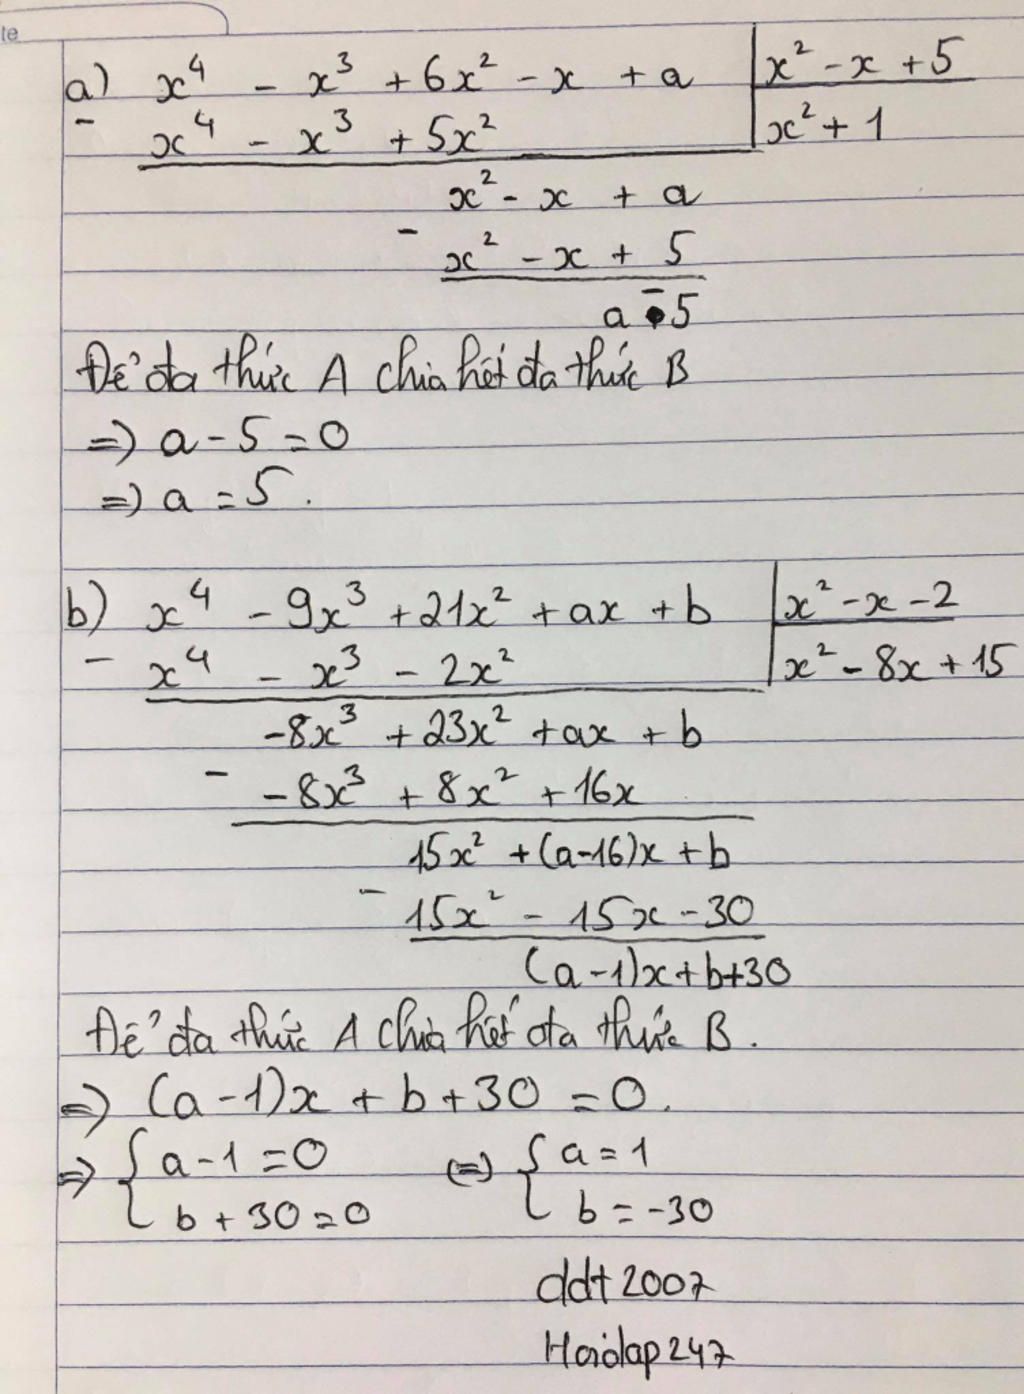 te
a) x⁴ - x³ + 6x² - x + a | x² - x + 5
- x⁴ - x³ + 5x² | x² + 1
x² - x + a
- x² - x + 5
a - 5
Để đa thức A chia hết đa thức B
=> a - 5 = 0
=> a = 5.
b) x⁴ - 9x³ + 21x² + ax + b | x² - x - 2
- x⁴ - x³ - 2x² | x² - 8x + 15
-8x³ + 23x² + ax + b
- -8x³ + 8x² + 16x
15x² + (a-16)x + b
- 15x² - 15x - 30
(a-1)x + b + 30
Để đa thức A chia hết đa thức B.
=> (a-1)x + b + 30 = 0.
=> { a - 1 = 0 <=> { a = 1
b + 30 = 0 b = -30
ddt2007
Hoidap247